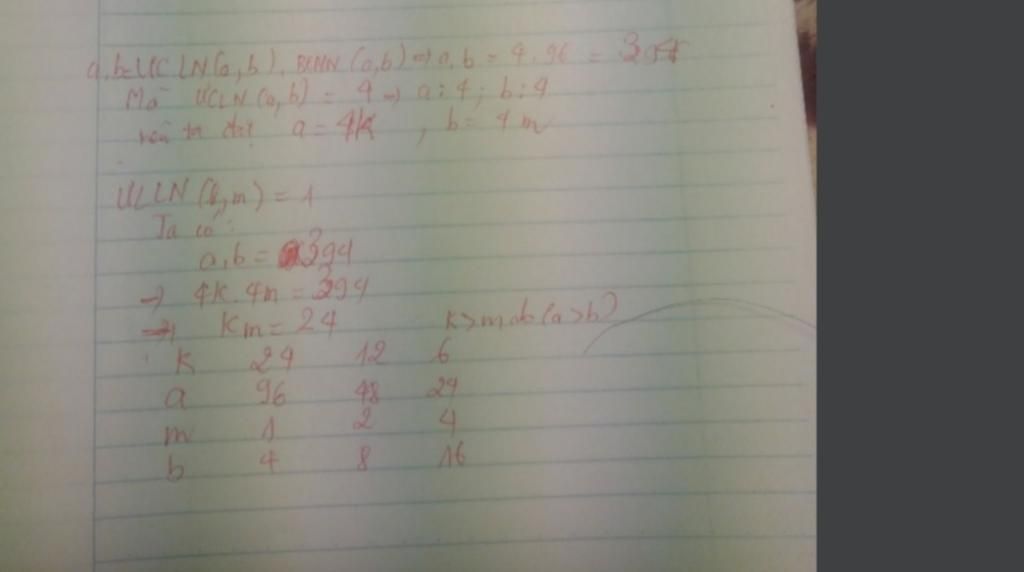 a.b=ƯCLN(a,b). BCNN(a,b) ⇒ a.b = 4.96 = 384
Mà ƯCLN(a,b) = 4 → a⋮4 ; b⋮4
nên ta đặt a = 4k , b = 4m
ƯCLN(k,m) = 1
Ta có:
a.b = 394
→ 4k.4m = 394
→ km = 24 k>m do (a>b)
k 24 12 6
a 96 48 24
m 1 2 4
b 4 8 16